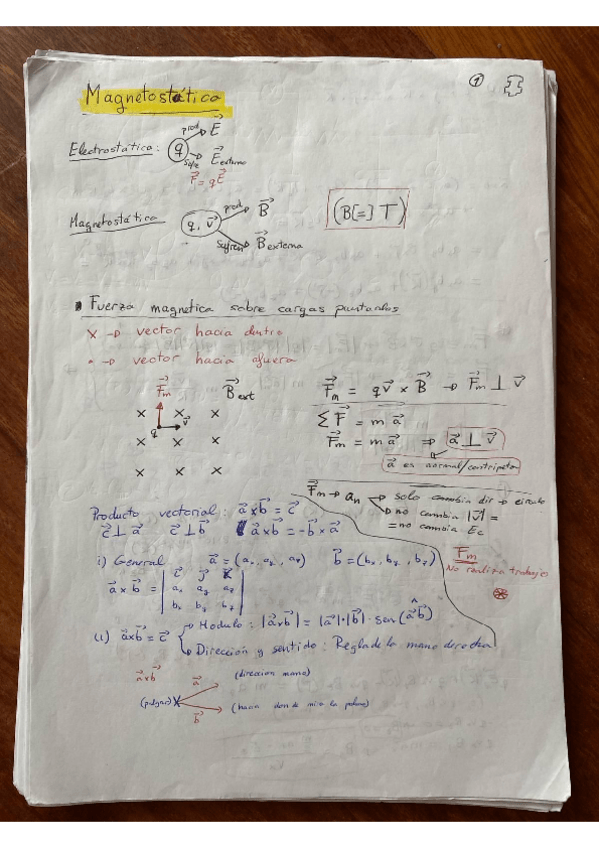 1
Magnetostática
Electrostática: q prod E⃗
sufre E⃗externo
F⃗ = qE⃗
Magnetostática q, v⃗ prod B⃗
sufren B⃗externa
(B[=] T)
Fuerza magnetica sobre cargas puntuales
x → vector hacia dentro
• → vector hacia afuera
F⃗m B⃗ext
x x x
q v⃗
x x x
x x x
F⃗m = qv⃗ × B⃗ → F⃗m ⊥ v⃗
∑F⃗ = m a⃗
F⃗m = m a⃗ ⇒ a⃗ ⊥ v⃗
a⃗ es normal/centripeta
F⃗m → an solo cambia dir → circulo
no cambia |v⃗| =
= no cambia Ec
Fm
No realiza trabajo
Producto vectorial: a⃗xb⃗ = c⃗
c⃗ ⊥ a⃗ c⃗ ⊥ b⃗ a⃗xb⃗ = -b⃗ x a⃗
i) General a⃗ = (ax, ay, az) b⃗ = (bx, by, bz)
a⃗ x b⃗ = | i⃗ j⃗ k⃗
ax ay az
bx by bz |
ii) a⃗xb⃗ = c⃗ Modulo: |a⃗xb⃗| = |a⃗|·|b⃗|· sen(a⃗b⃗)
Dirección y sentido: Regla de la mano derecha
a⃗xb⃗ a⃗ (direccion mano)
(pulgar) x
b⃗ (hacia donde mira la palma)